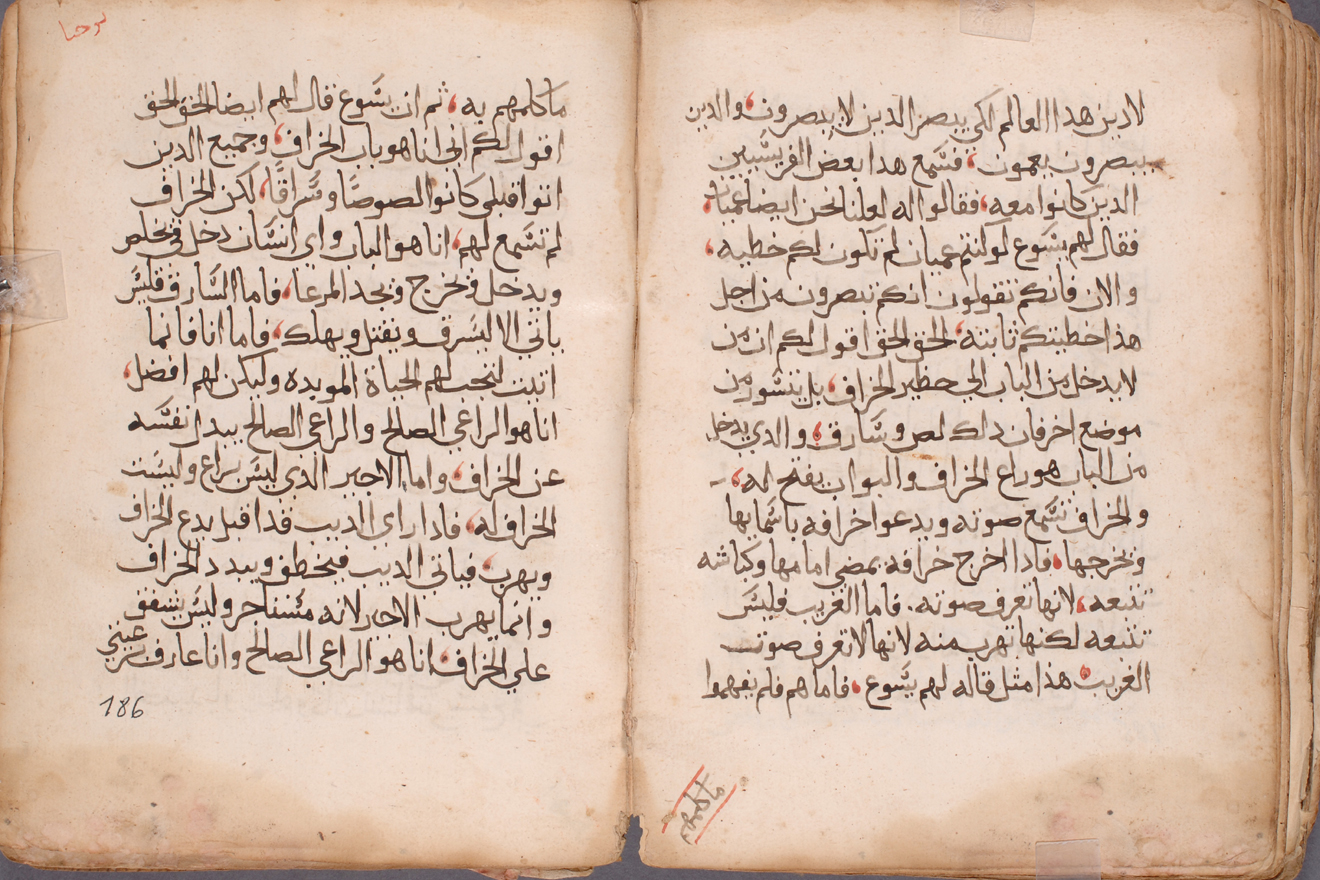 لادين هدا العالم لكي يبصر الدين لا يبصرون، والدين
يبصرون يعمون، فسمع هدا بعض الفريسيين
الدين كانوا معه، فقالوا له لعلنا نحن ايضا عميان،
فقال لهم يسوع لو كنتم عميان لم تكون لكم خطيه،
والان فانكم تقولون انكم تبصرون من اجل
هذا خطيتكم ثابته، الحق الحق اقول لكم ان من
لا يدخل من الباب الى حظير الخراف، بل يتسور من
موضع اخر فان دلك لص وسارق، والدي يدخل
من الباب هو راع الخراف والبواب يفتح له،
والخراف تسمع صوته ويدعوا خرافه باسمايها
ويخرجها، فادا اخرج خرافه يمضي امامها وكباشه
تتبعه، لانها تعرف صوته. فاما الغريب فليس
تتبعه لكنها تهرب منه لانها لا تعرف صوت
الغريب، هذا مثل قاله لهم يسوع، فاما هم فلم يفهموا
ما كلمهم
يوحنا
ما كلمهم به، ثم ان يسوع قال لهم ايضا الحق الحق
اقول لكم اني انا هو باب الخراف، وجميع الدين
اتوا قبلي كانوا لصوصا وسراقا، لكن الخراف
لم تسمع لهم، انا هو الباب واي انسان دخل في فيخلص
ويدخل ويخرج ويجد المرعا، فاما السارق فليس
ياتي الا ليسرق ويقتل ويهلك، فاما انا فانما
اتيت لتجب لهم الحياة المويده وليكن لهم افضل،
انا هو الراعي الصالح والراعي الصالح يبدل نفسه
عن الخراف، واما الاجير الدي ليس براع وليست
الخراف له، فادا راى الديب قد اقبل يدع الخراف
ويهرب، فياتي الديب فيخطف ويبدد الخراف
وانما يهرب الاجير لانه مستاجر وليس يشفق
علي الخراف، انا هو الراعي الصالح وانا عارف برعيتي
186